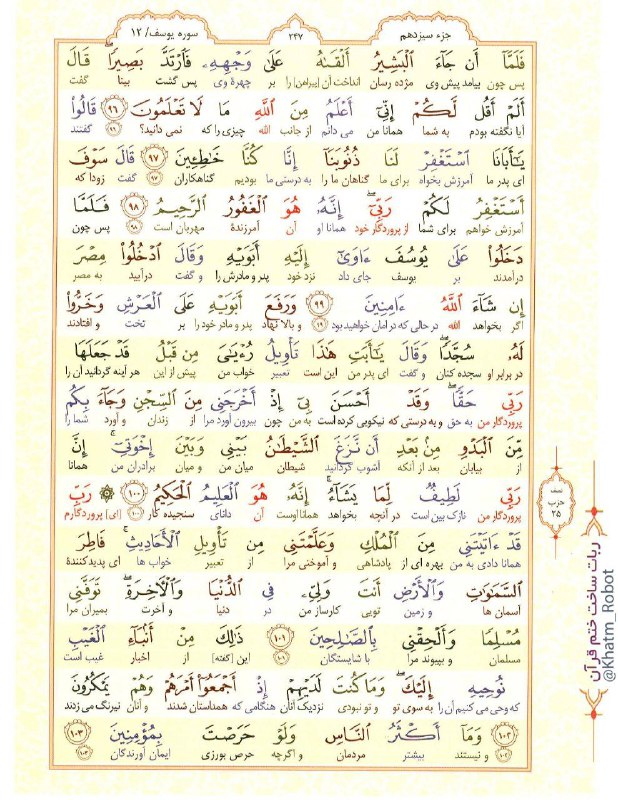 جزء سیزدهم
۲۴۷
سوره یوسف/ ۱۲
فَلَمَّآ أَن جَآءَ ٱلْبَشِيرُ أَلْقَىٰهُ عَلَىٰ وَجْهِهِۦ فَٱرْتَدَّ بَصِيرًا ۖ قَالَ
پس چون بیامد پیش وی مژده رسان انداخت آن [پیراهن] را بر چهرهٔ وی پس گشت بینا گفت
أَلَمْ أَقُل لَّكُمْ إِنِّىٓ أَعْلَمُ مِنَ ٱللَّهِ مَا لَا تَعْلَمُونَ ۹۶ قَالُوا۟
آیا نگفته بودم به شما همانا من می دانم از جانب الله چیزی را که نمی دانید؟ ۹۶ گفتند
يَـٰٓأَبَانَا ٱسْتَغْفِرْ لَنَا ذُنُوبَنَآ إِنَّا كُنَّا خَـٰطِـِٔينَ ۹۷ قَالَ سَوْفَ
ای پدر ما آمرزش بخواه برای ما گناهان ما را به درستی ما بودیم گناهکاران ۹۷ گفت زودا که
أَسْتَغْفِرُ لَكُمْ رَبِّىٓ ۖ إِنَّهُۥ هُوَ ٱلْغَفُورُ ٱلرَّحِيمُ ۹۸ فَلَمَّا
آمرزش خواهم برای شما از پروردگار خود همانا او آن آمرزندهٔ مهربان است ۹۸ پس چون
دَخَلُوا۟ عَلَىٰ يُوسُفَ ءَاوَىٰٓ إِلَيْهِ أَبَوَيْهِ وَقَالَ ٱدْخُلُوا۟ مِصْرَ
درآمدند بر یوسف جای داد نزد خود پدر و مادرش را و گفت درآیید به مصر
إِن شَآءَ ٱللَّهُ ءَامِنِينَ ۹۹ وَرَفَعَ أَبَوَيْهِ عَلَى ٱلْعَرْشِ وَخَرُّوا۟
اگر بخواهد الله در حالی که در امان خواهید بود ۹۹ و بالا نهاد پدر و مادر خود را بر تخت و افتادند
لَهُۥ سُجَّدًا ۖ وَقَالَ يَـٰٓأَبَتِ هَـٰذَا تَأْوِيلُ رُءْيَـٰىَ مِن قَبْلُ قَدْ جَعَلَهَا
در برابر او سجده کنان و گفت ای پدر من این است تعبیر خواب من پیش از این هر آینه گردانید آن را
رَبِّى حَقًّا ۖ وَقَدْ أَحْسَنَ بِىٓ إِذْ أَخْرَجَنِى مِنَ ٱلسِّجْنِ وَجَآءَ بِكُم
پروردگار من به حق و به درستی که نیکویی کرده است به من چون بیرون آورد مرا از زندان و آورد شما را
مِّنَ ٱلْبَدْوِ مِنۢ بَعْدِ أَن نَّزَغَ ٱلشَّيْطَـٰنُ بَيْنِى وَبَيْنَ إِخْوَتِىٓ ۚ إِنَّ
از بیابان بعد از آنکه آشوب گردانید شیطان میان من و میان برادران من همانا
رَبِّى لَطِيفٌ لِّمَا يَشَآءُ ۚ إِنَّهُۥ هُوَ ٱلْعَلِيمُ ٱلْحَكِيمُ ۱۰۰ ۞ رَبِّ
پروردگار من نازک بین است در آنچه بخواهد همانا اوست آن دانای سنجیده کار ۱۰۰ [ای] پروردگارم
قَدْ ءَاتَيْتَنِى مِنَ ٱلْمُلْكِ وَعَلَّمْتَنِى مِن تَأْوِيلِ ٱلْأَحَادِيثِ ۚ فَاطِرَ
همانا دادی به من بهره ای از پادشاهی و آموختی مرا از تعبیر خواب ها ای پدیدکنندهٔ
ٱلسَّمَـٰوَٰتِ وَٱلْأَرْضِ أَنتَ وَلِىِّۦ فِى ٱلدُّنْيَا وَٱلْـَٔاخِرَةِ ۖ تَوَفَّنِى
آسمان ها و زمین تویی کارساز من در دنیا و آخرت بمیران مرا
مُسْلِمًا وَأَلْحِقْنِى بِٱلصَّـٰلِحِينَ ۱۰۱ ذَٰلِكَ مِنْ أَنۢبَآءِ ٱلْغَيْبِ
مسلمان و بپیوند مرا با شایستگان ۱۰۱ این [گفته] از اخبار غیب است
نُوحِيهِ إِلَيْكَ ۖ وَمَا كُنتَ لَدَيْهِمْ إِذْ أَجْمَعُوٓا۟ أَمْرَهُمْ وَهُمْ يَمْكُرُونَ
که وحی می کنیم آن را به سوی تو و تو نبودی نزدیک آنان هنگامی که همداستان شدند و آنان نیرنگ می زدند
۱۰۲ وَمَآ أَكْثَرُ ٱلنَّاسِ وَلَوْ حَرَصْتَ بِمُؤْمِنِينَ ۱۰۳
۱۰۲ و نیستند بیشتر مردمان و اگرچه حرص بورزی ایمان آورندگان ۱۰۳
نصف
حزب
۲۵
ربات ساخت ختم قرآن
@Khatm_Robot